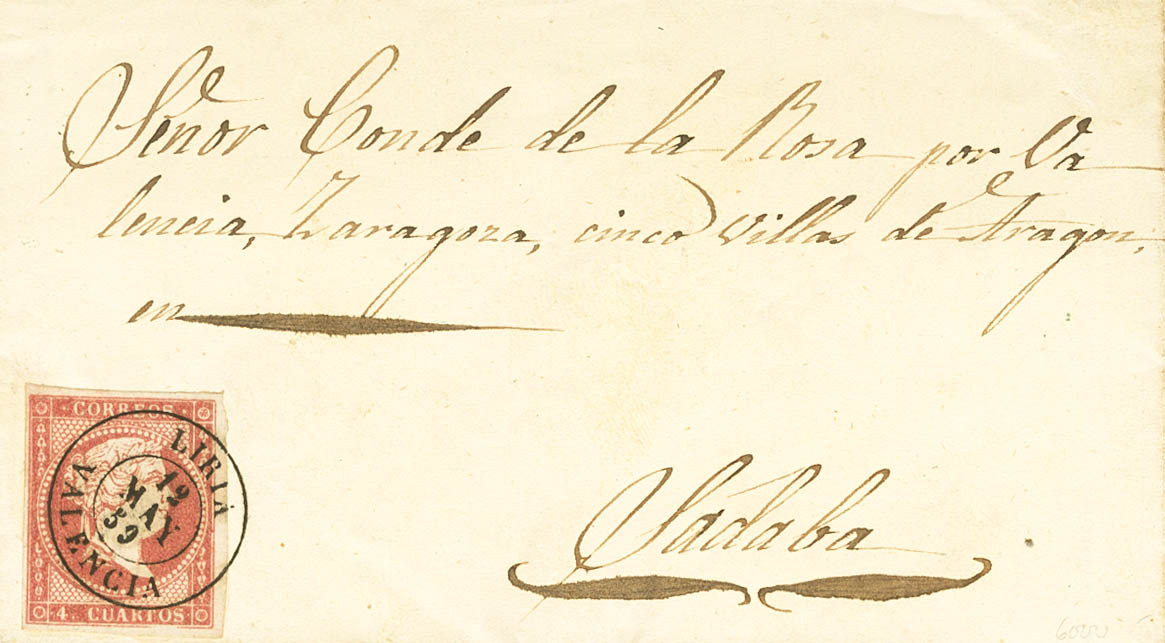 Señor Conde de la Rosa por Va
lencia, Zaragoza, cinco Villas de Aragon,
en
CORREOS
LIRIA
12
MAY
59
VALENCIA
4 CUARTOS
Sadaba
6000